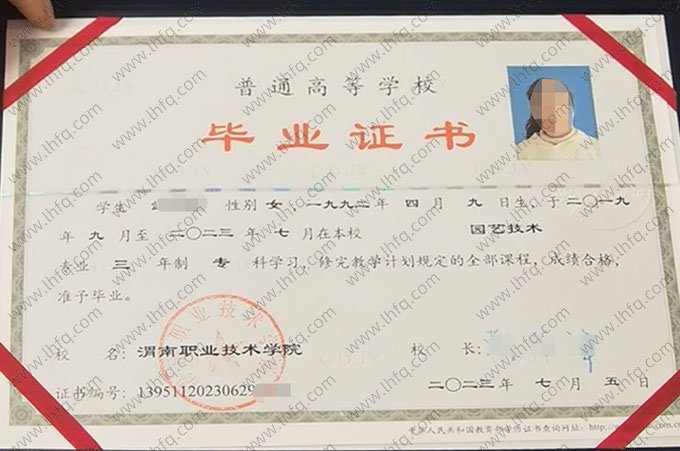 普通高等学校
毕业证书
学生 性别 女，一九九二年 四 月 九 日生，于二〇一九
年 九 月至 二〇二三 年 七 月在本校 园艺技术
专业 三 年制 专 科学习，修完教学计划规定的全部课程，成绩合格，
准予毕业。
职业技术学
校 名：渭南职业技术学院 校 长：
证书编号：13951120230629 二〇二三 年 七 月 五 日
中华人民共和国教育部学历证书查询网址：http://www.
www.lhfq.com